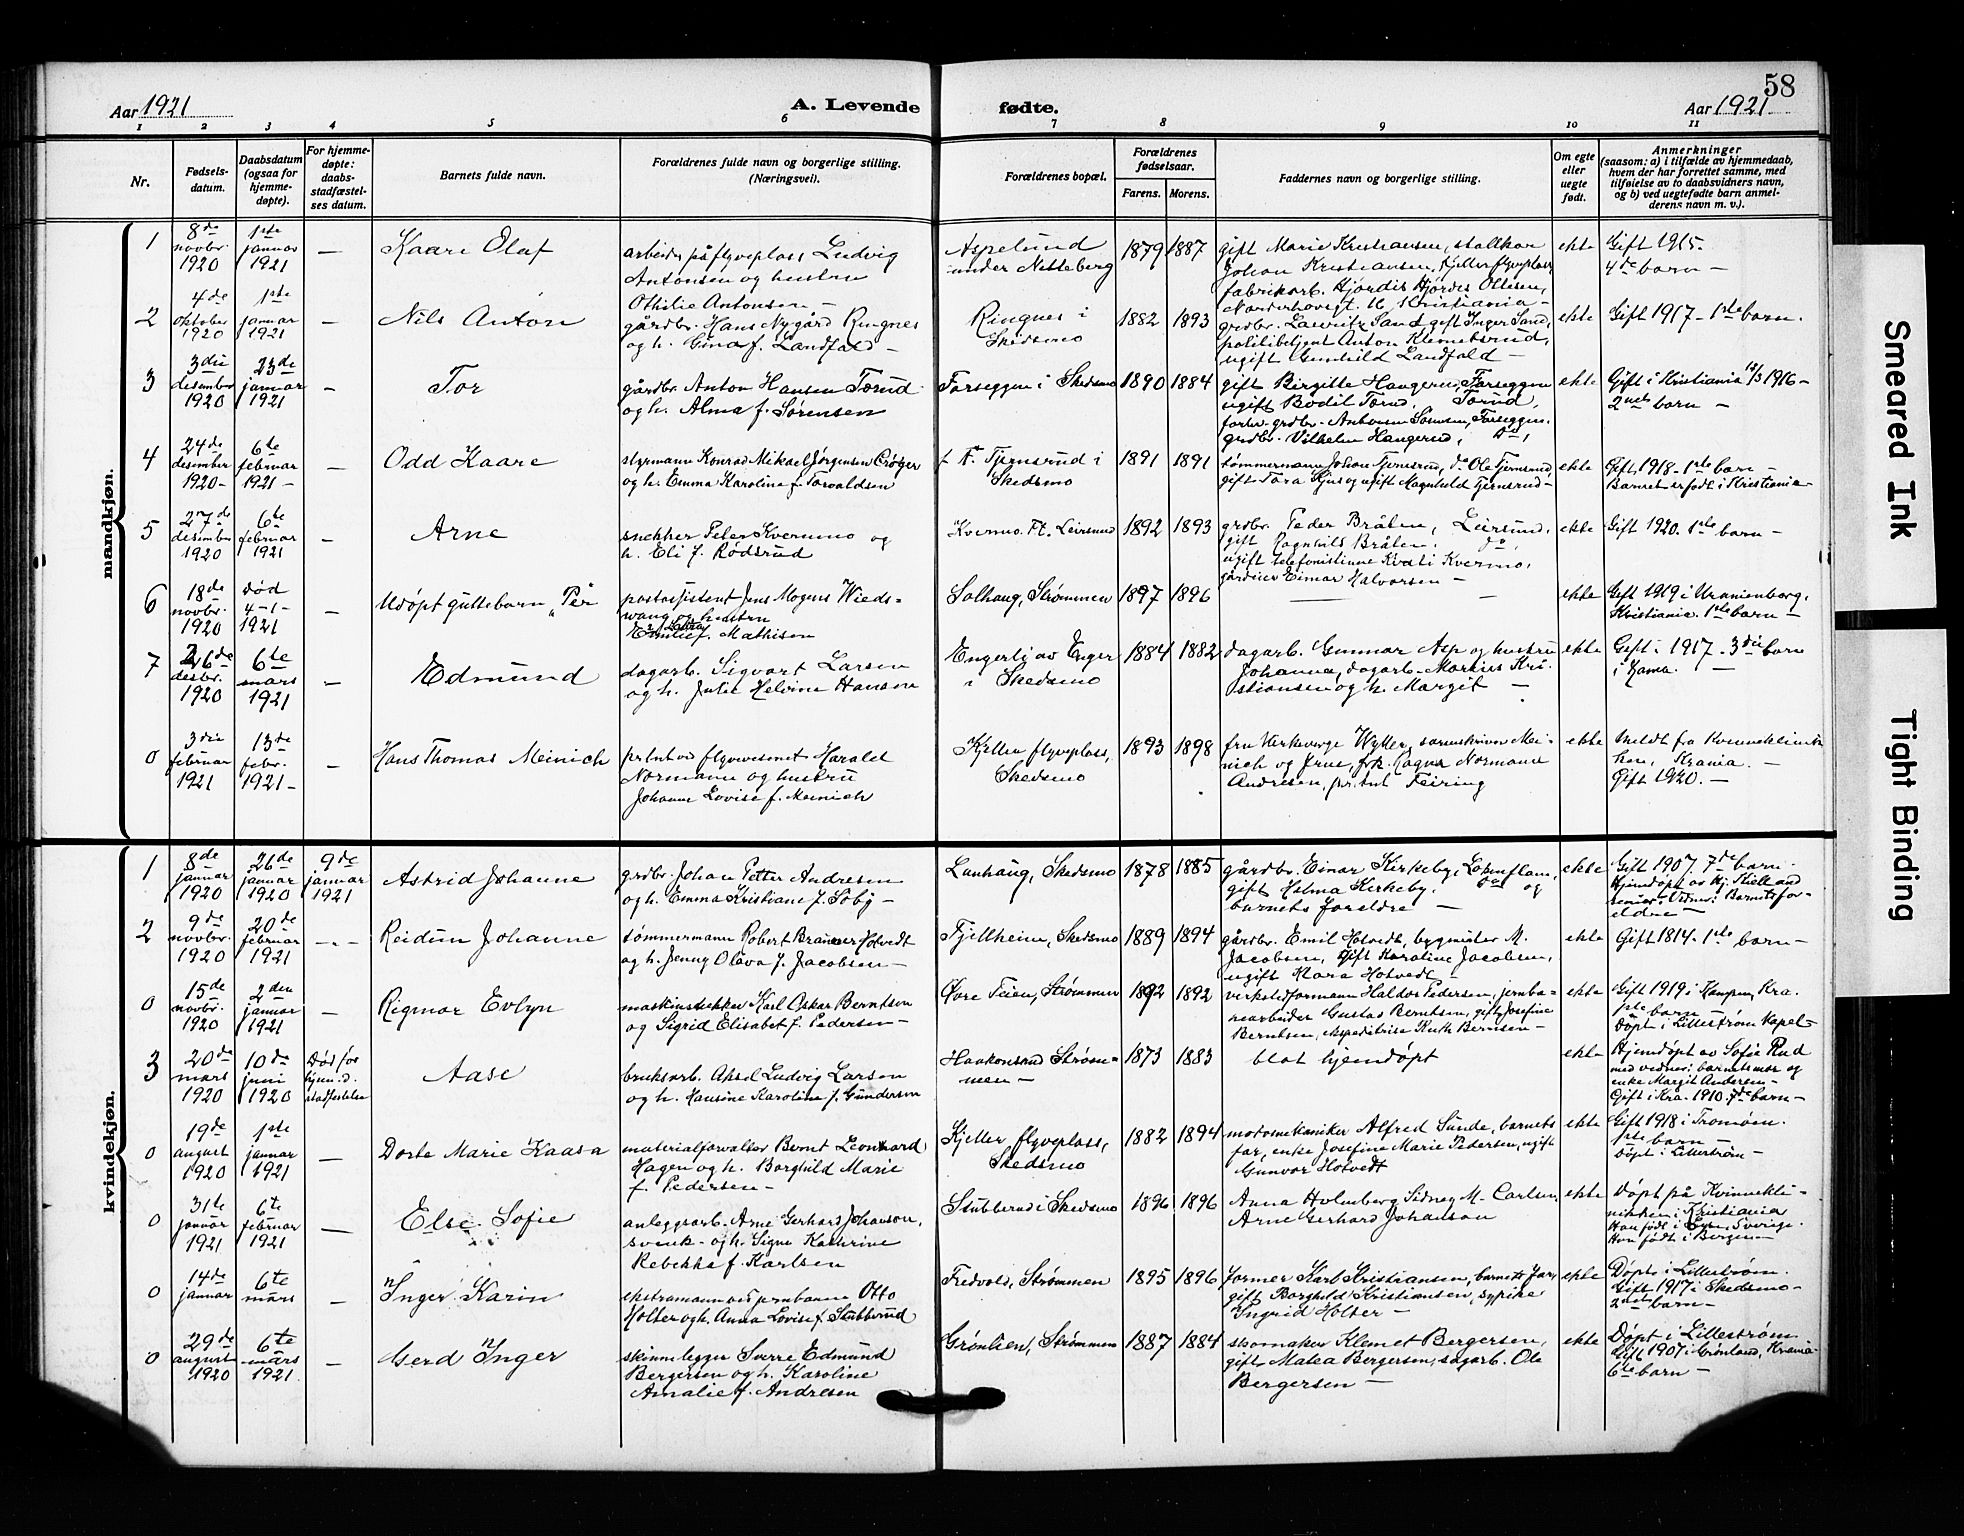 58
Aar 1921
A. Levende fødte.
Aar 1921
1 2 3 4 5 6 7 8 9 10 11
Nr.
Fødsels-
datum.
Daabsdatum
(ogsaa for
hjemme-
døpte).
For hjemme-
døpte:
daabs-
stadfæstel-
ses datum.
Barnets fulde navn.
Forældrenes fulde navn og borgerlige stilling.
(Næringsvei).
Forældrenes bopæl.
Forældrenes
fødselsaar.
Farens. Morens.
Faddernes navn og borgerlige stilling.
Om egte
eller
uegte
født.
Anmerkninger
(saasom: a) i tilfælde av hjemmedaab,
hvem der har forrettet samme, med
tilføielse av to daabsvidners navn,
og b) ved uegtefødte barn anmel-
derens navn m. v.).
mandkjøn.
1
8de
novbr.
1920
1ste
januar
1921
—
Kaare Olaf
arbeider på flyveplass Ludvig
Antonsen og hustru
Othilie Antonsen —
Aspelund
under Netteberg
1879 1887
gift Marie Kristiansen, stallkar
Johan Kristiansen, Kjeller flyveplass
fabrikarb. Hjördis Ottesen,
ekte
Gift 1915.
4de barn —
2
4de
oktober
1920
1ste
januar
1921
—
Nils Anton
gårdbr. Hans Nygård Ringnes
og h. Gina f. Landfald —
Ringnes i
Skedsmo
1882 1893
grdbr. Lauritz Sand, gift Inger Sand,
politibetjent Anton Klemetsrud,
ugift Gunhild Landfald —
ekte
Gift 1917 — 1ste barn.
3
3die
desember
1920
23de
januar
1921
—
Tor
gårdbr. Anton Hansen Torud
og h. Alma f. Sørensen
Farseggen i Skedsmo
1890 1884
gift Birgitte Haugerud, Farseggen
ugift Bodil Torud, Torud,
grdbr. Vilhelm Haugerud, do,
ekte
Gift i Kristiania 12/3 1916 —
2net barn —
4
24de
desember
1920 —
6te
februar
1921 —
—
Odd Kaare
styrmann Konrad Mikael Jørgensen Crøger
og h. Emma Karoline f. Torvaldsen
Tjernsrud i
Skedsmo
1891 1891
tømmermann Johan Tjernsrud, do Ole Tjernsrud
ekte
Gift 1918. 1ste barn —
Barnet er født i Kristiania —
5
27de
desember
1920
6te
februar
1921
—
Arne
snekker Peter Kvermo og
h. Eli f. Rødsrud
Kvermo. Pt. Leirsund
1892 1893
grdbr. Peder Bråten, Leirsund,
gift Ragnhild Bråten, do,
ugift telefonistinne Kvermo,
gårdeier Einar Halvorsen —
ekte
Gift 1920. 1ste barn —
6
18de
novbr.
1920
død
4-1-
1921
—
Udøpt guttebarn "Per
postassistent Jens Mogens Wieds-
wang og hustru
f. Mathisen
Solhaug, Strømmen
1897 1896
—
ekte
Gift 1919 i Uranienborg,
Kristiania. 1ste barn —
7
26de
desbr.
1920
6te
mars
1921
—
Edmund
dagarb. Sigvart Larsen
og h. Julie Helvine Hansen
Engerli av Enger
i Skedsmo
1884 1882
dagarb. Gunnar Asp og hustru
Johanna, dagarb. Markus Kri-
stiansen og h. Margit —
ekte
Gift i 1917 — 3die barn
—
0
3die
februar
1921
13de
febr.
1921 —
—
Hans Thomas Meinich
flyvevesenet Harald
Normann og hustru
Johanne Lovise f. Meinich
Kjeller flyveplass,
Skedsmo
1893 1898
fru kirkeverge Wyller, sorenskriver Mei-
nich og frue, frk. Ragna Normann
Andresen, pr.lnt Feiring
ekte
Meldt fra Kvinneklinik
ken, Krania. —
Gift 1920. —
kvindekjøn.
1
8de
januar
1920
26de
januar
1920
9de
januar
1921
Astrid Johanne
grdbr. Johan Petter Andresen
og h. Emma Kristiane f. Søby —
Lanhaug, Skedsmo
1878 1885
gårdbr. Einar Kirkeby,
gift Helma Kirkeby, do og
barnets foreldre —
ekte
Gift 1907. 7de barn.
Hjemdøpt av Hj. Kielland
senior. Vidner: Barnets for-
eldre —
2
9de
novbr.
1920
20de
februar
1921
- - -
Reidun Johanne
tømmermann Robert Branner Hotvedt
og h. Jenny Olava f. Jacobsen —
Fjellheim, Skedsmo
1889 1894
gårdbr. Emil Hotvedt, bygmester M.
Jacobsen, gift Karoline Jacobsen,
ugift Klara Hotvedt —
ekte
Gift 1814. 1ste barn —
0
15de
novbr.
1920
2den
januar
1921
—
Rigmor Evlyn
maskinsnekker Karl Oskar Berntsen
og Sigrid Elisabet f. Pedersen —
Øvre Teien, Strømmen
1892 1892
verkstedformann Haldor Pedersen, jernba-
nearbeider Gustav Berntsen, gift Josefine
Berntsen, ekspeditrise Ruth Berntsen —
ekte
Gift 1919 i Kampen, Kra.
1ste barn —
Døpt i Lillestrøm Kapel —
3
20de
mars
1920
10de
juni
1920
Død før
hjem.d.
stadfestelse
Aase
bruksarb. Aksel Ludvig Larson
og h. Hansine Karoline f. Gundersen
Haakonsrud Strøm-
men —
1873 1883
blot hjemdøpt
ekte
Hjemdøpt av Sofie Rud
med vidner: barnets mor og
enke Margit Andersen —
Gift i Kra. 1910. 7de barn —
0
19de
august
1920
1ste
januar
1921
—
Dorte Marie Kaasa
materialforvalter Bernt Leonhard
Hagen og h. Borghild Marie
f. Pedersen —
Kjeller flyveplass,
Skedsmo
1882 1894
motormekaniker Alfred Sunde, barnets
far, enke Josefine Marie Pedersen, ugift
Gunvor Hotvedt
ekte
Gift 1918 i Tromøen.
1ste barn —
Døpt i Lillestrøm —
0
31te
januar
1921
6te
februar
1921
—
Else Sofie
anleggsarb. Arne Gerhard Johanson,
svensk — og h. Signe Kathrine
Rebekka f. Karlsen
Stubberud i Skedsmo
1896 1896
Anna Holmberg, Sidney M. Carlsen,
Arne Gerhard Johanson
ekte
Døpt på Kvinnekli-
nikken i Kristiania
Han født i Sverige.
Hun født i Bergen —
0
14de
januar
6te
mars
—
Inger Karin
ekstramann ved jernbanen Otto
Holter og h. Anna Lovise f. Stubberud
Fredvold, Strømmen
1895 1896
former Karl Kristiansen, barnets far,
gift Borghild Kristiansen, sypike
Ingrid Holter —
ekte
Døpt i Lillestrøm.
Gift 1917 i Skedsmo —
2net barn —
0
29de
august
1920
6te
mars
1921
—
Gerd Inger
skinnelegger Sverre Edmund
Bergersen og h. Karoline
Amalie f. Andresen
Grønlien, Strømmen
1887 1884
skomaker Klemet Bergersen,
gift Matea Bergersen, sagarb. Ole
Bergersen —
ekte
Døpt i Lillestrøm
Gift 1907 i Grønland, Krania
6te barn —
Smeared Ink
Tight Binding